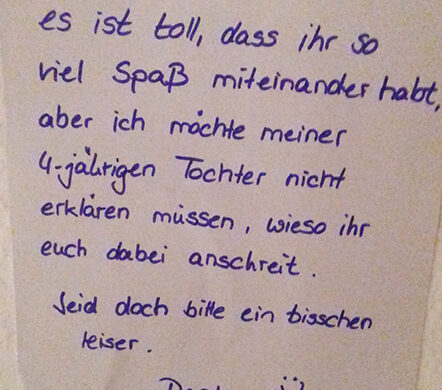 es ist toll, dass ihr so
viel Spaß miteinander habt,
aber ich möchte meiner
4-jährigen Tochter nicht
erklären müssen, wieso ihr
euch dabei anschreit.
Seid doch bitte ein bisschen
leiser.